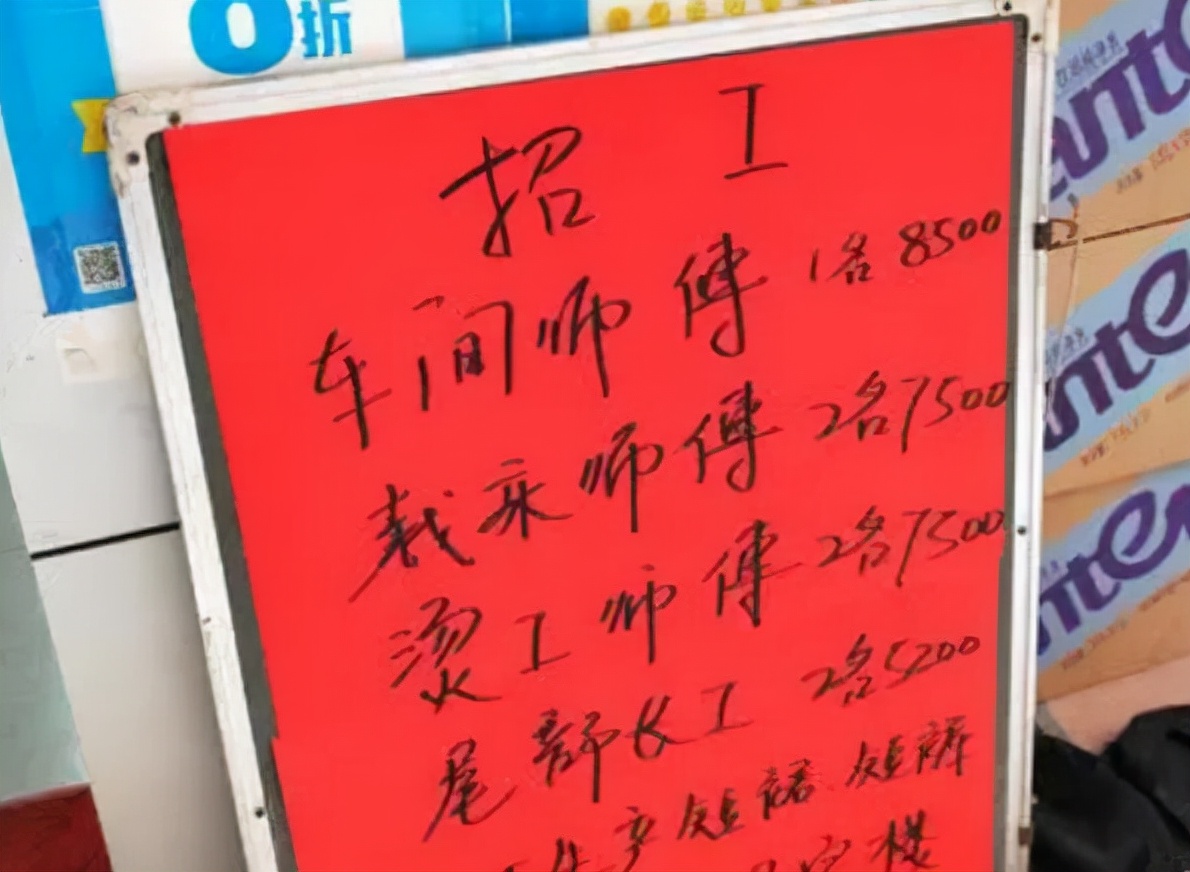 0折
招工
车间师傅 1名 8500
裁床师傅 2名 7500
烫工师傅 2名 7500
尾部长工 2名 5200
生产短裙 短裤
楼